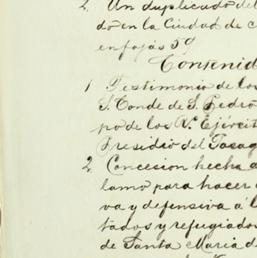 2. Un duplicado del
do en la Ciudad de
en fojas 59
Contenid
1 Testimonio de los
S. Conde de S. Pedro
po de los Rs. Ejércit
Presidio del Pasag
2 Concesion hecha a
lamo para hacer
va y defensiva á l
tados y refugiados
de Santa Maria de